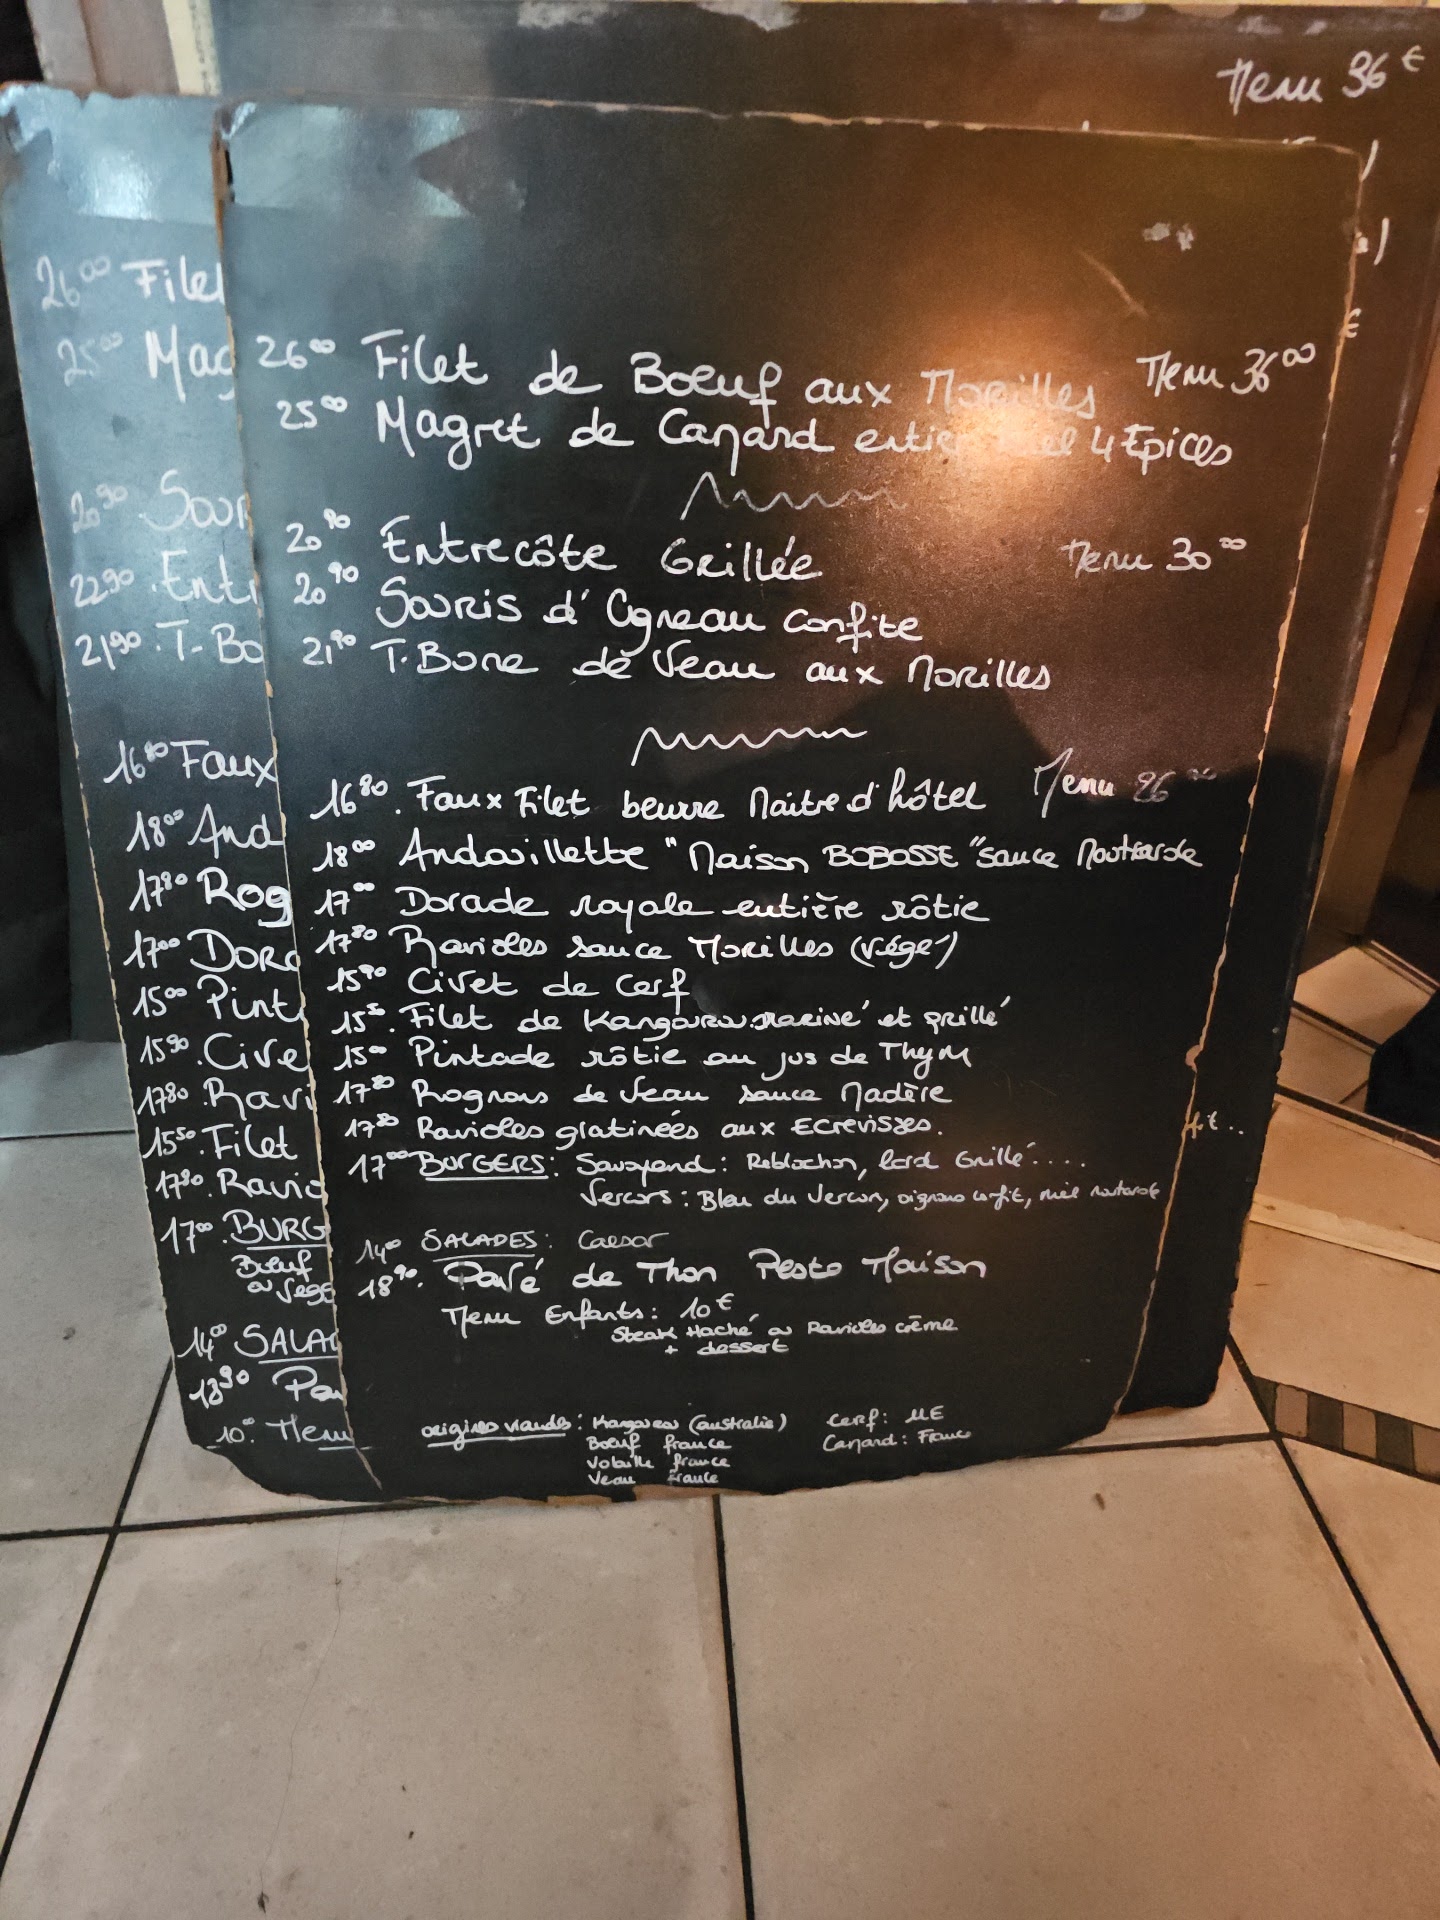 Menu 36 €
26°° Filet
25°° Mag
20⁹⁰ Sour
22⁹⁰ . Entr
21⁹⁰ . T-Bo
16⁸⁰ Faux
18°° And
17⁸⁰ Rog
17°° Dora
15°° Pint
15⁹⁰ . Cive
17⁸⁰ . Ravi
15⁵⁰ . Filet
17⁸⁰ . Ravio
17°° . BURG
Boeuf
ou Végé
14°° SALAD
18⁹⁰ Pav
10°° . Menu
26°° Filet de Boeuf aux Morilles Menu 36°°
25°° Magret de Canard entier miel 4 Epices
20⁹⁰ Entrecôte Grillée Menu 30°°
20⁹⁰ Souris d'Agneau confite
21⁹⁰ T.Bone de Veau aux Morilles
16⁸⁰ . Faux Filet beurre Maitre d'hôtel Menu 26°°
18°° Andouillette "Maison BOBOSSE" sauce Moutarde
17°° Dorade royale entière rôtie
17⁸⁰ Ravioles sauce Morilles (végé)
15⁹⁰ Civet de Cerf
15⁵⁰ . Filet de Kangourou mariné et grillé
15°° Pintade rôtie au jus de Thym
17⁸⁰ Rognons de Veau sauce Madère
17⁸⁰ Ravioles gratinées aux Ecrevisses.
17°° BURGERS : Savoyard : Reblochon, lard Grillé ....
Vercors : Bleu du Vercors, oignons confit, miel moutarde
fit..
14°° SALADES : Caesar
18⁹⁰ . Pavé de Thon Pesto Maison
Menu Enfants : 10 €
Steak Haché ou Ravioles crème
+ dessert
origines viandes : Kangourou (australie) Cerf : UE
Boeuf france Canard : France
Volaille france
Veau france